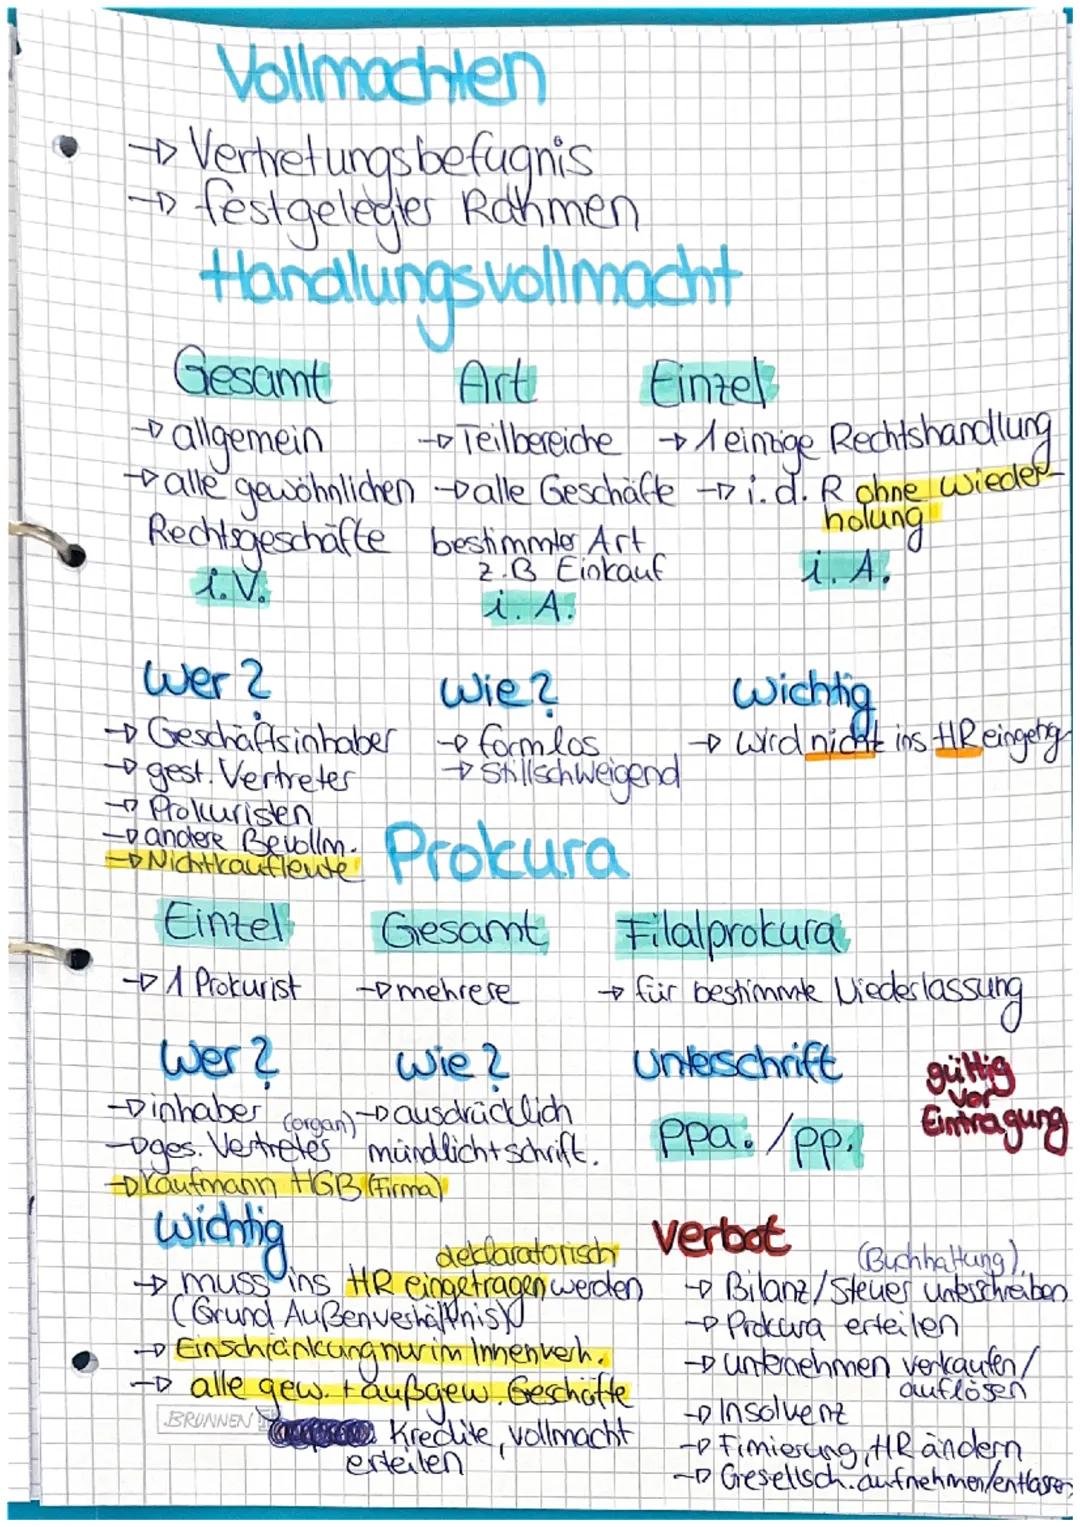 Vollmachten
→ Vertretungsbefugnis
→ festgelegter Rahmen
Handlungsvollmacht
Gesamt Art Einzel
→ allgemein → Teilbereiche → 1 einzige Rechtshandlung
→ alle gewöhnlichen → alle Geschäfte → i. d. R ohne Wieder-
holung
Rechtsgeschäfte bestimmter Art
z.B Einkauf i. A.
i. V.
i. A.
Wer? Wie? Wichtig
→ Geschäftsinhaber → formlos → wird nicht ins HR eingetrg
→ gest. Vertreter → stillschweigend
→ Prokuristen
→ andere Bevollm.
→ Nichtkaufleute
Prokura
Einzel Gesamt Filalprokura
→ 1 Prokurist → mehrere → für bestimmte Niederlassung
Wer? Wie? Unterschrift gültig
vor
Eintragung
→ inhaber (organ) → ausdrücklich
→ ges. Vertreter mündlich + schrift. ppa. / pp.
→ Kaufmann HGB (Firma)
Wichtig Verbot
deklaratorisch (Buchhaltung)
→ muss ins HR eingetragen werden → Bilanz/Steuer unterschreiben
(Grund Außenverhältnis) → Prokura erteilen
→ Einschränkung nur im Innenverh. → unternehmen verkaufen/
auflösen
→ alle gew. + außgew. Geschäfte → Insolvenz
BRUNNEN
Kredite, vollmacht → Fimierung, HR ändern
erteilen → Gesellsch. aufnehmen/entlassen